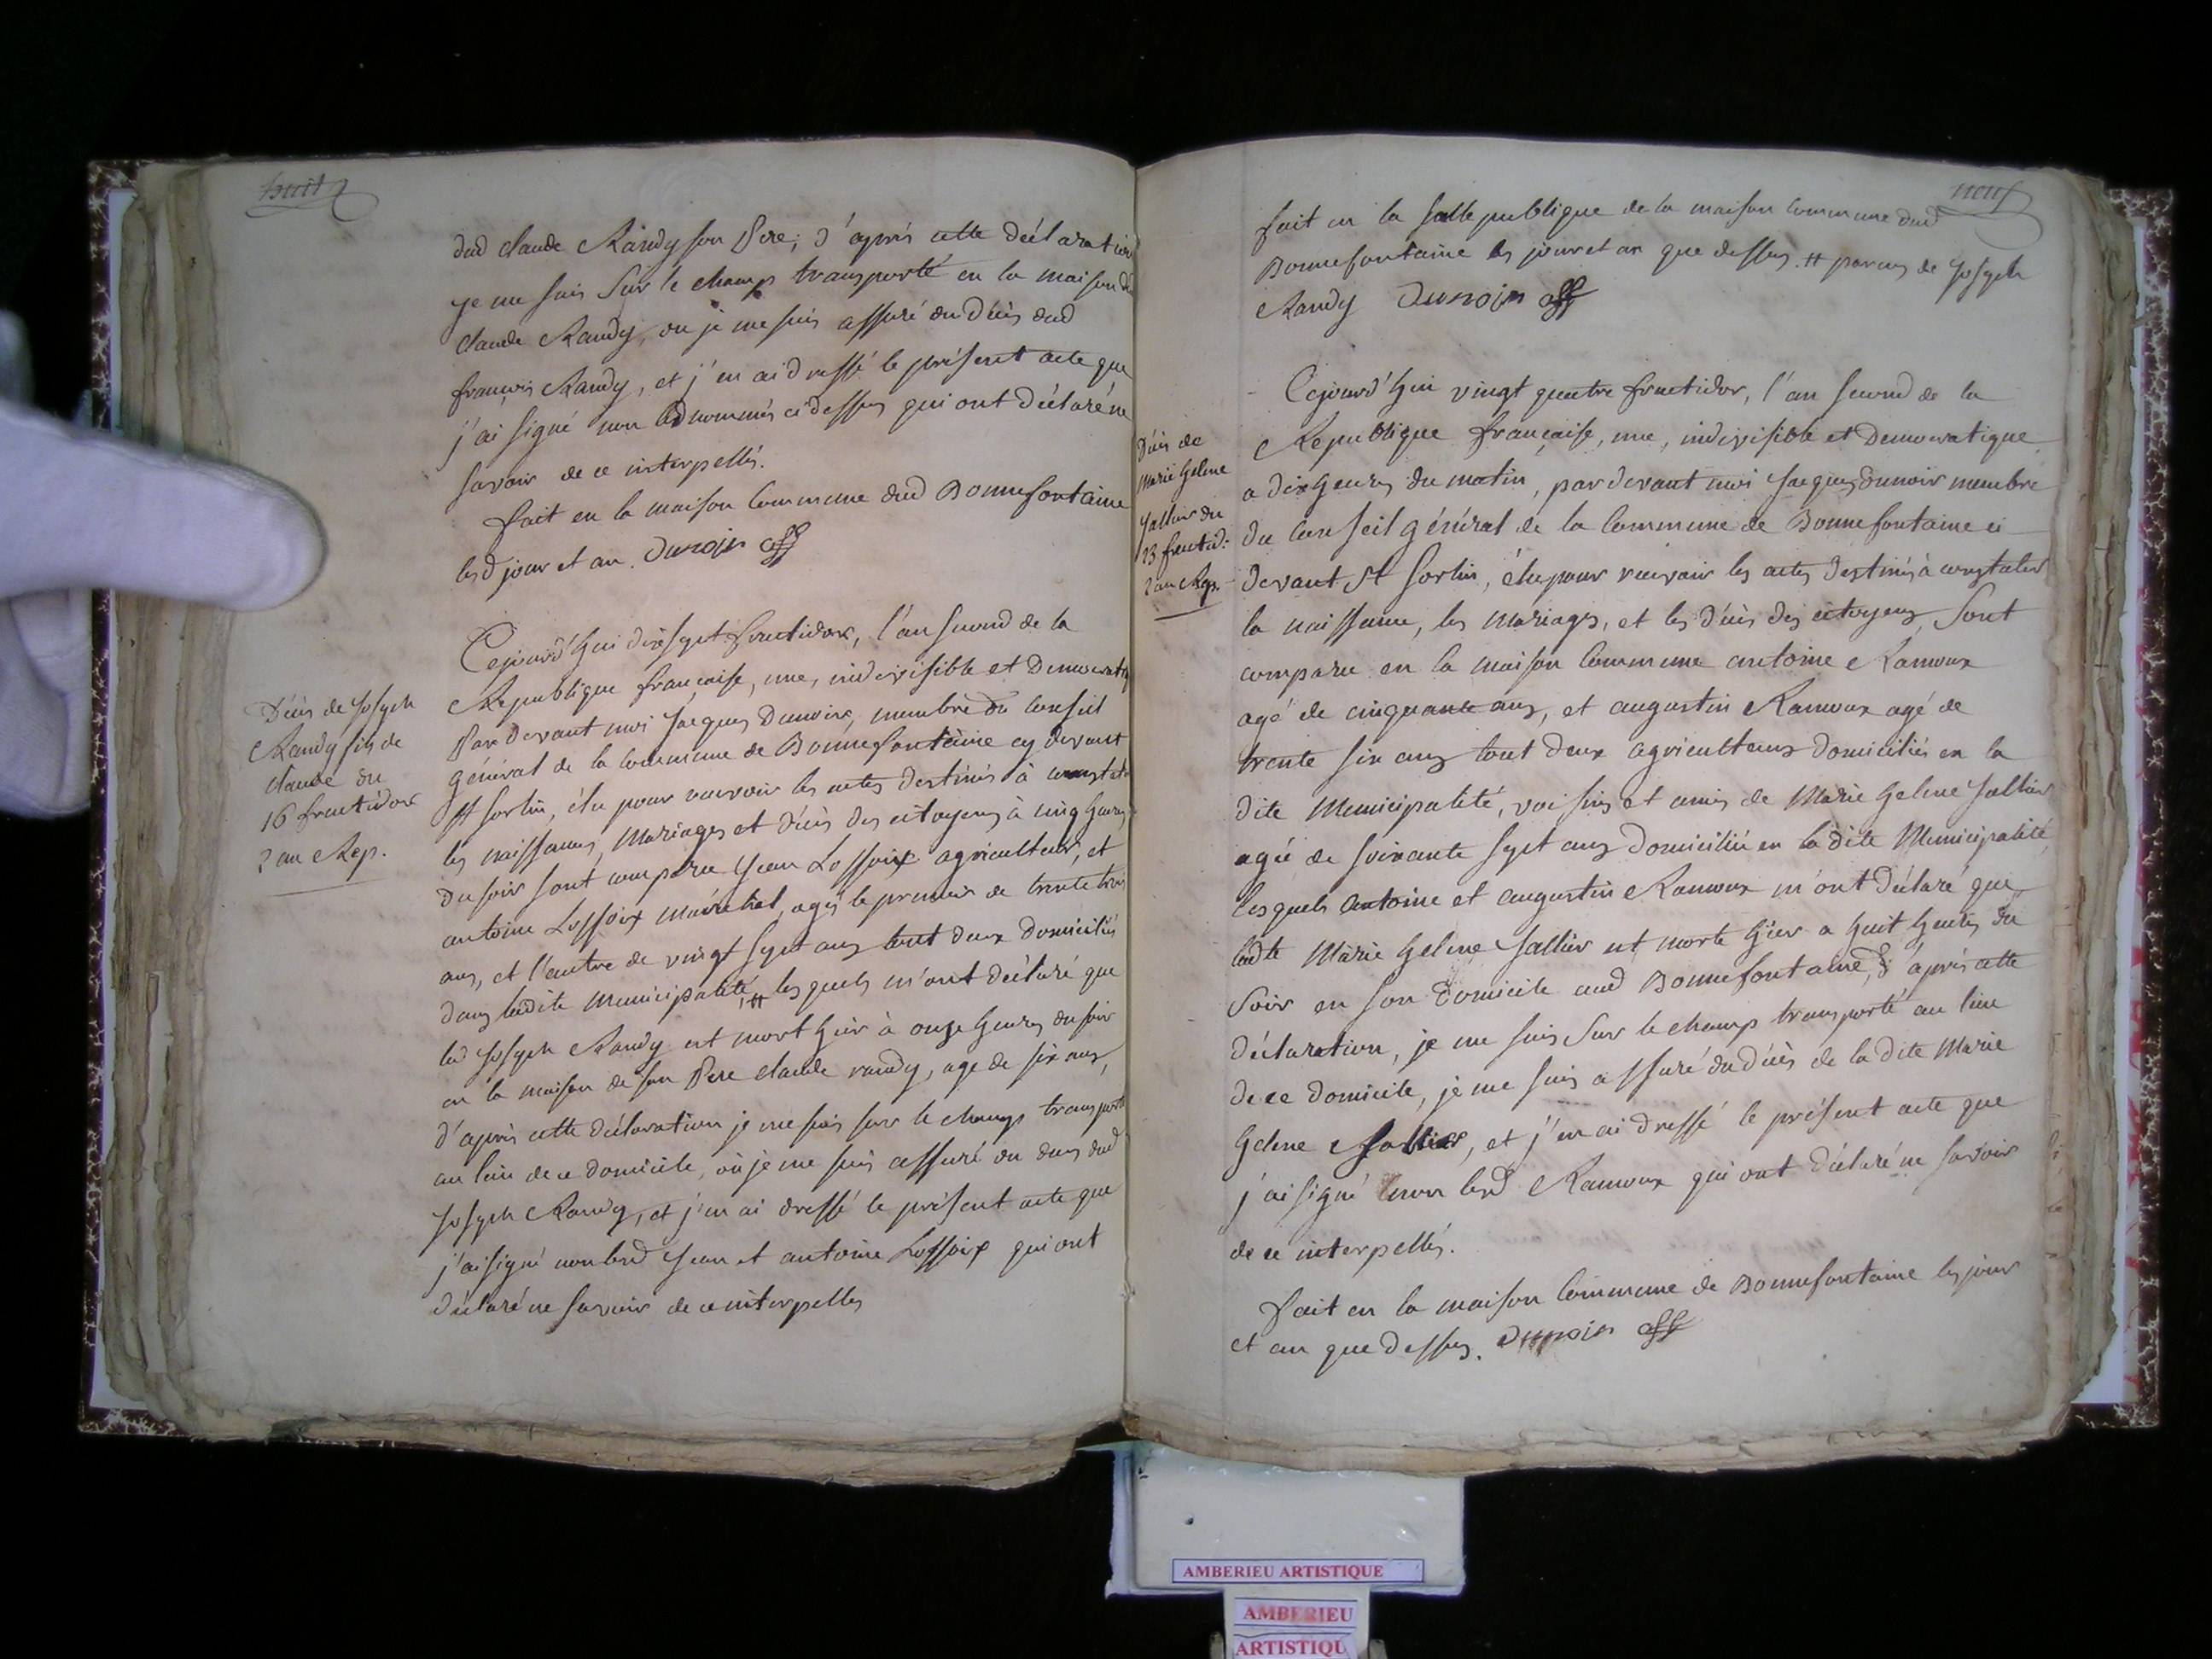 huit
dud claude Randy son Pere; d'après cette déclaration
je me suis sur le champ transporté en la maison du
claude Randy, ou je me suis assuré du décès dud
françois Randy, et j'en ai dressé le présent acte que
j'ai signé non les nommés ci dessus qui ont déclaré ne
savoir de ce interpellés.
fait en la maison Commune dud Bonnefontaine
lesd jour et an. Dunoir off
Décès de Joseph
Randy fils de
claude du
16 fructidor
2 an Rep.
Cejourd'hui dix sept fructidor, l'an second de la
Republique francaise, une, indivisible et Democratiq
Par devant moi Jacques Dunoir, membre du Conseil
général de la Commune de Bonnefontaine cy devant
St Sorlin, élu pour recevoir les actes destinés à constater
les naissances, Mariages et décès des citoyens à cinq heures
du soir sont comparu Jean Lossoix agriculteur, et
antoine Lossoix maréchal, agés le premier de trente trois
ans, et l'autre de vingt sept ans tout deux domiciliés
dans ladite Municipalité, # lesquels m'ont déclaré que
led Joseph Randy est mort hier à onze heures du soir
en la maison de son Pere claude randy, age de six ans,
d'après cette déclaration je me suis sur le champ transporté
au lieu de ce domicile, où je me suis assuré du deces dud
Joseph Randy, et j'en ai dressé le présent acte que
j'ai signé non lesd Jean et antoine Lossoix qui ont
déclaré ne savoir de ce interpellés
neuf
fait en la salle publique de la maison Commune dud
Bonnefontaine les jour et an que dessus. # parens de Joseph
Randy Dunoir off
Décès de
Marie helene
Sallier du
23 fructid:
2 an Rep.
Cejourd'hui vingt quatre fructidor, l'an second de la
Republique française, une, indivisible et Democratique
a dix heures du matin, par devant moi Jacques Dunoir membre
du Conseil général de la Commune de Bonnefontaine ci
devant St Sorlin, élu pour recevoir les actes destinés à constater
la naissance, les Mariages, et les décès des citoyens, Sont
comparu en la maison Commune antoine Ramoux
agé de cinquante ans, et augustin Ramoux agé de
trente six ans tout deux agriculteurs domiciliés en la
dite Municipalité, voisins et amis de Marie helene Sallier
agée de soixante sept ans domiciliée en la dite Municipalité,
lesquels antoine et augustin Ramoux m'ont déclaré que
ladte Marie helene Sallier est morte hier a huit heures du
soir en son domicile aud Bonnefontaine, d'après cette
déclaration, je me suis sur le champ transporté au lieu
de ce domicile, je me suis assuré du décès de la dite Marie
helene Sallier, et j'en ai dressé le présent acte que
j'ai signé non lesd Ramoux qui ont déclaré ne savoir
de ce interpellés.
fait en la maison Commune de Bonnefontaine les jour
et an que dessus. Dunoir off
AMBERIEU ARTISTIQUE
AMBERIEU
ARTISTIQU